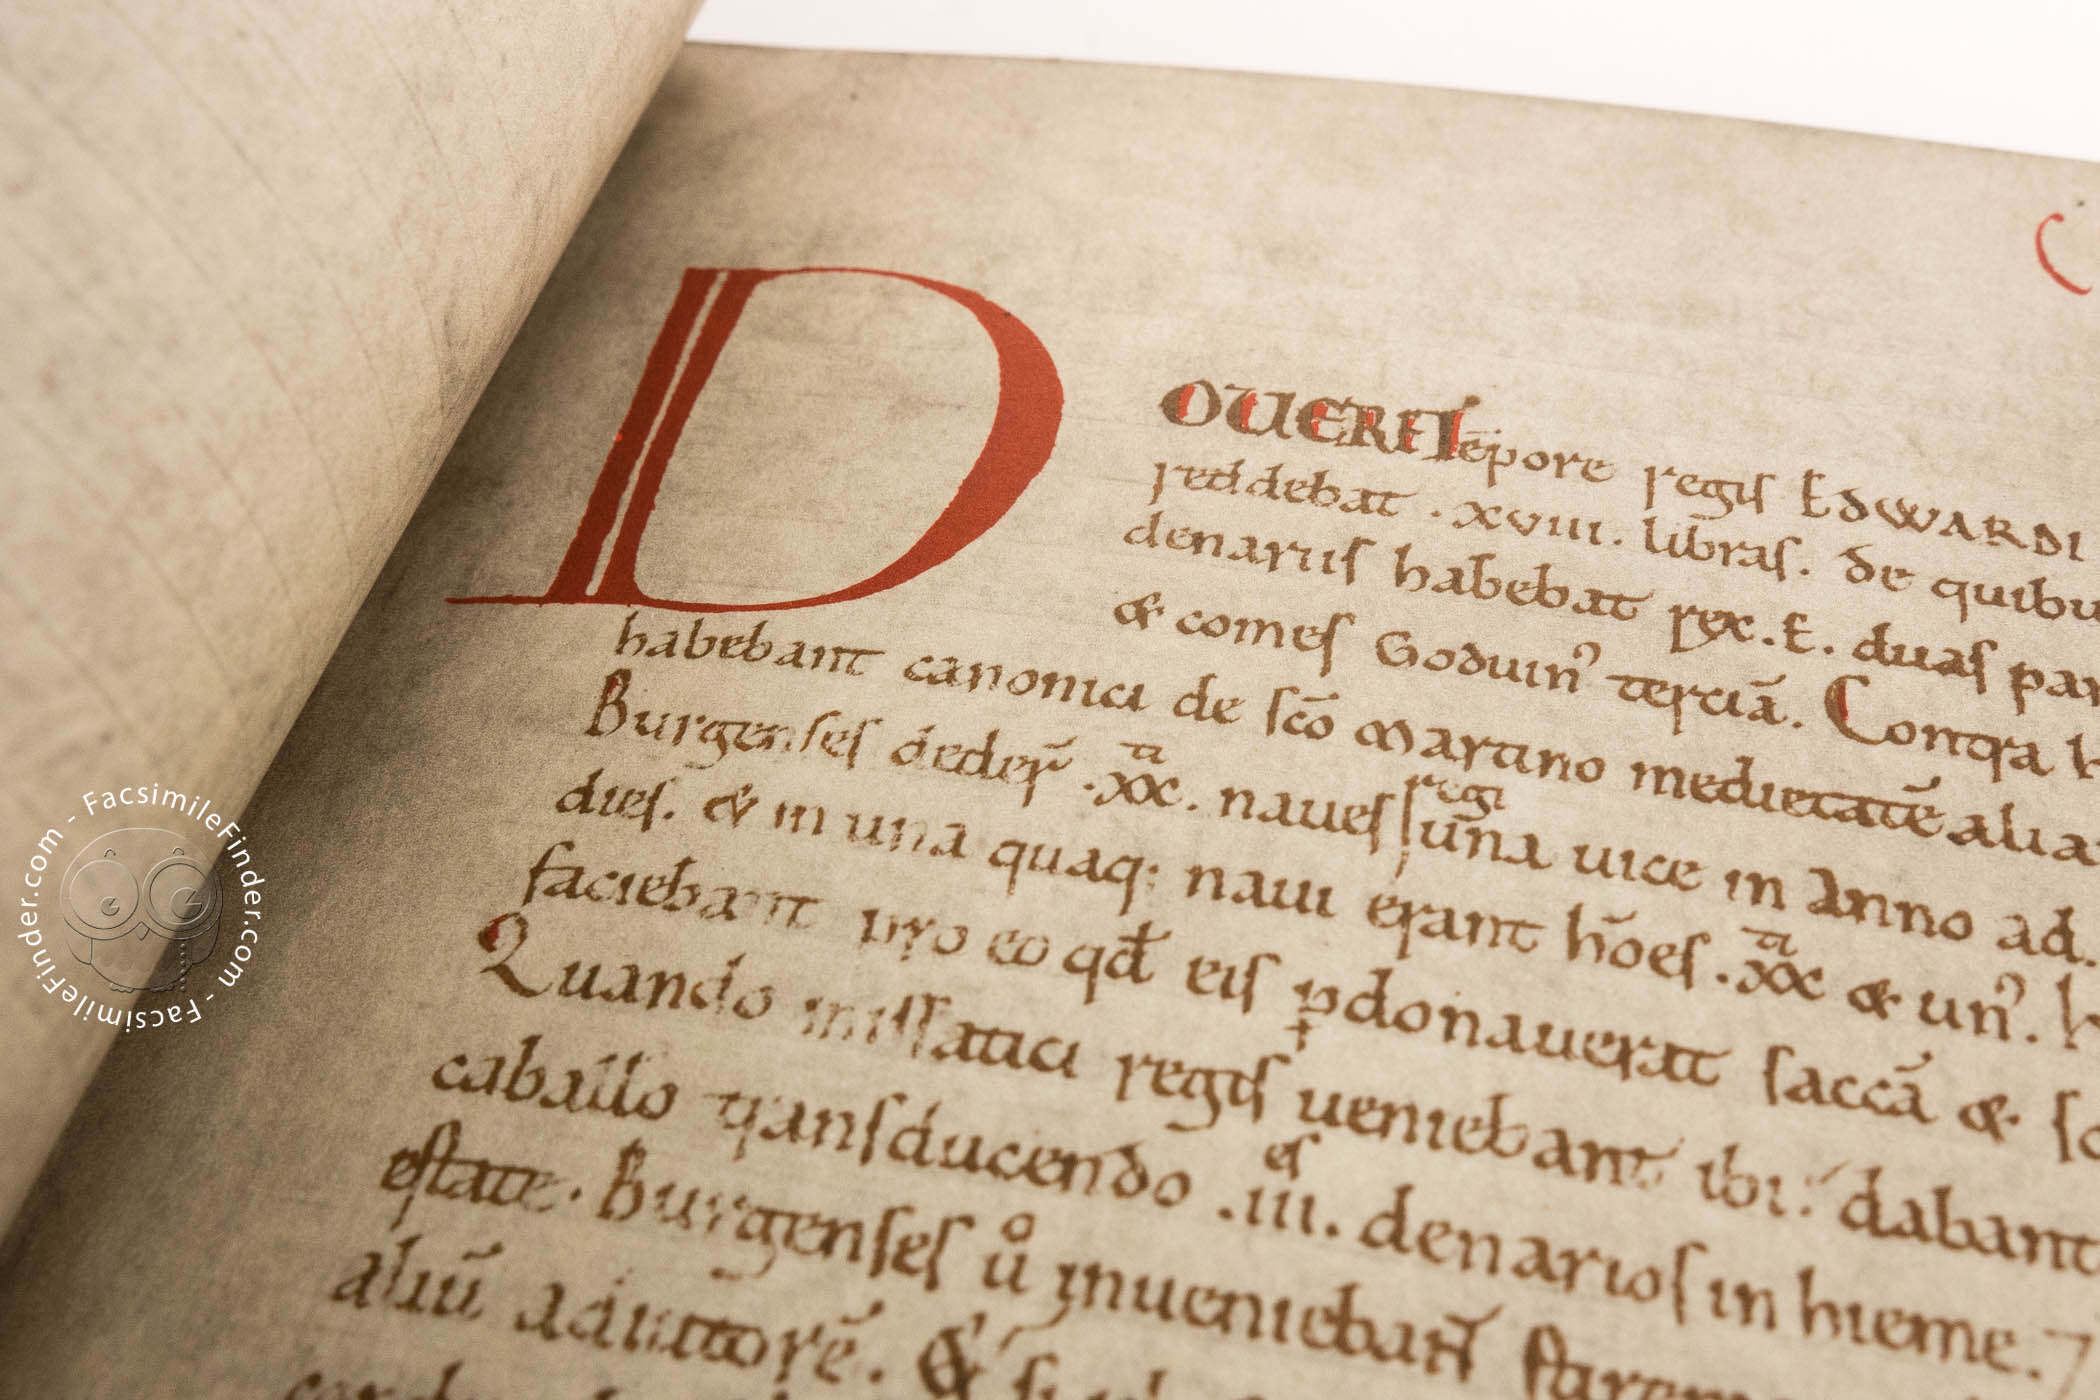 DOUERE Tēpore regis EdWARDI
reddebat .xviii. libras. de quibu
denariis habebat rex .E. duas par
& comes Goduin⁹ terciā. Contra h
habebant canonici de sc̄o Martino medietatē aliā
Burgenses deder̄ .xxti. naues regi una uice in anno ad
dies. & in una quaq; naui erant ho̅es .xxti. & un⁹. h
faciebant pro eo qd̄ eis pdonauerat saccā & so
Quando missatici regis ueniebant ibi: dabant
caballo transducendo .iiies. denarios in hieme. 7
estate. Burgenses u° inueniebant
aliū adiutorē. & si
FacsimileFinder.com - FacsimileFinder.com - FacsimileFinder.com